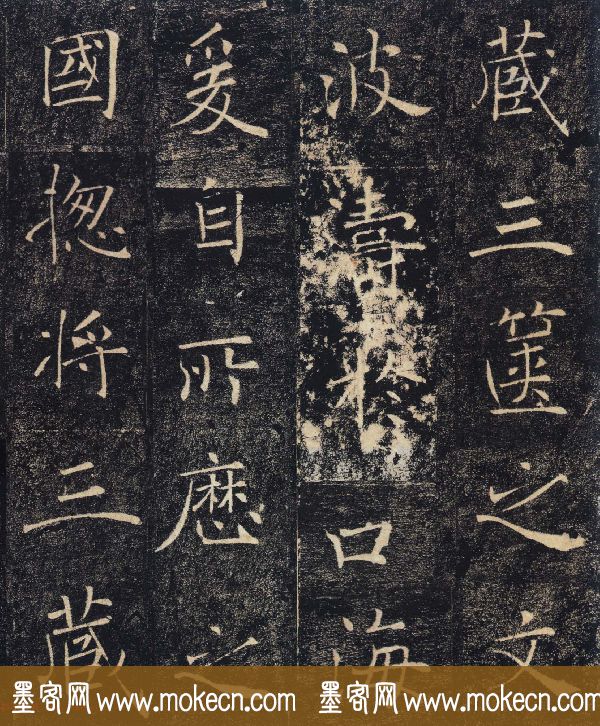 藏三篋之文
波濤於口海
爰自所歷之
國揔將三藏
墨客网 www.mokecn.com 墨客网 www.mokecn.com